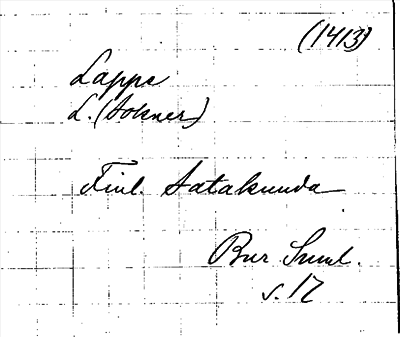 (1413)
Lappe
L. (Sokner)
Finl. Satakunda
Bur Suml.
s. 17